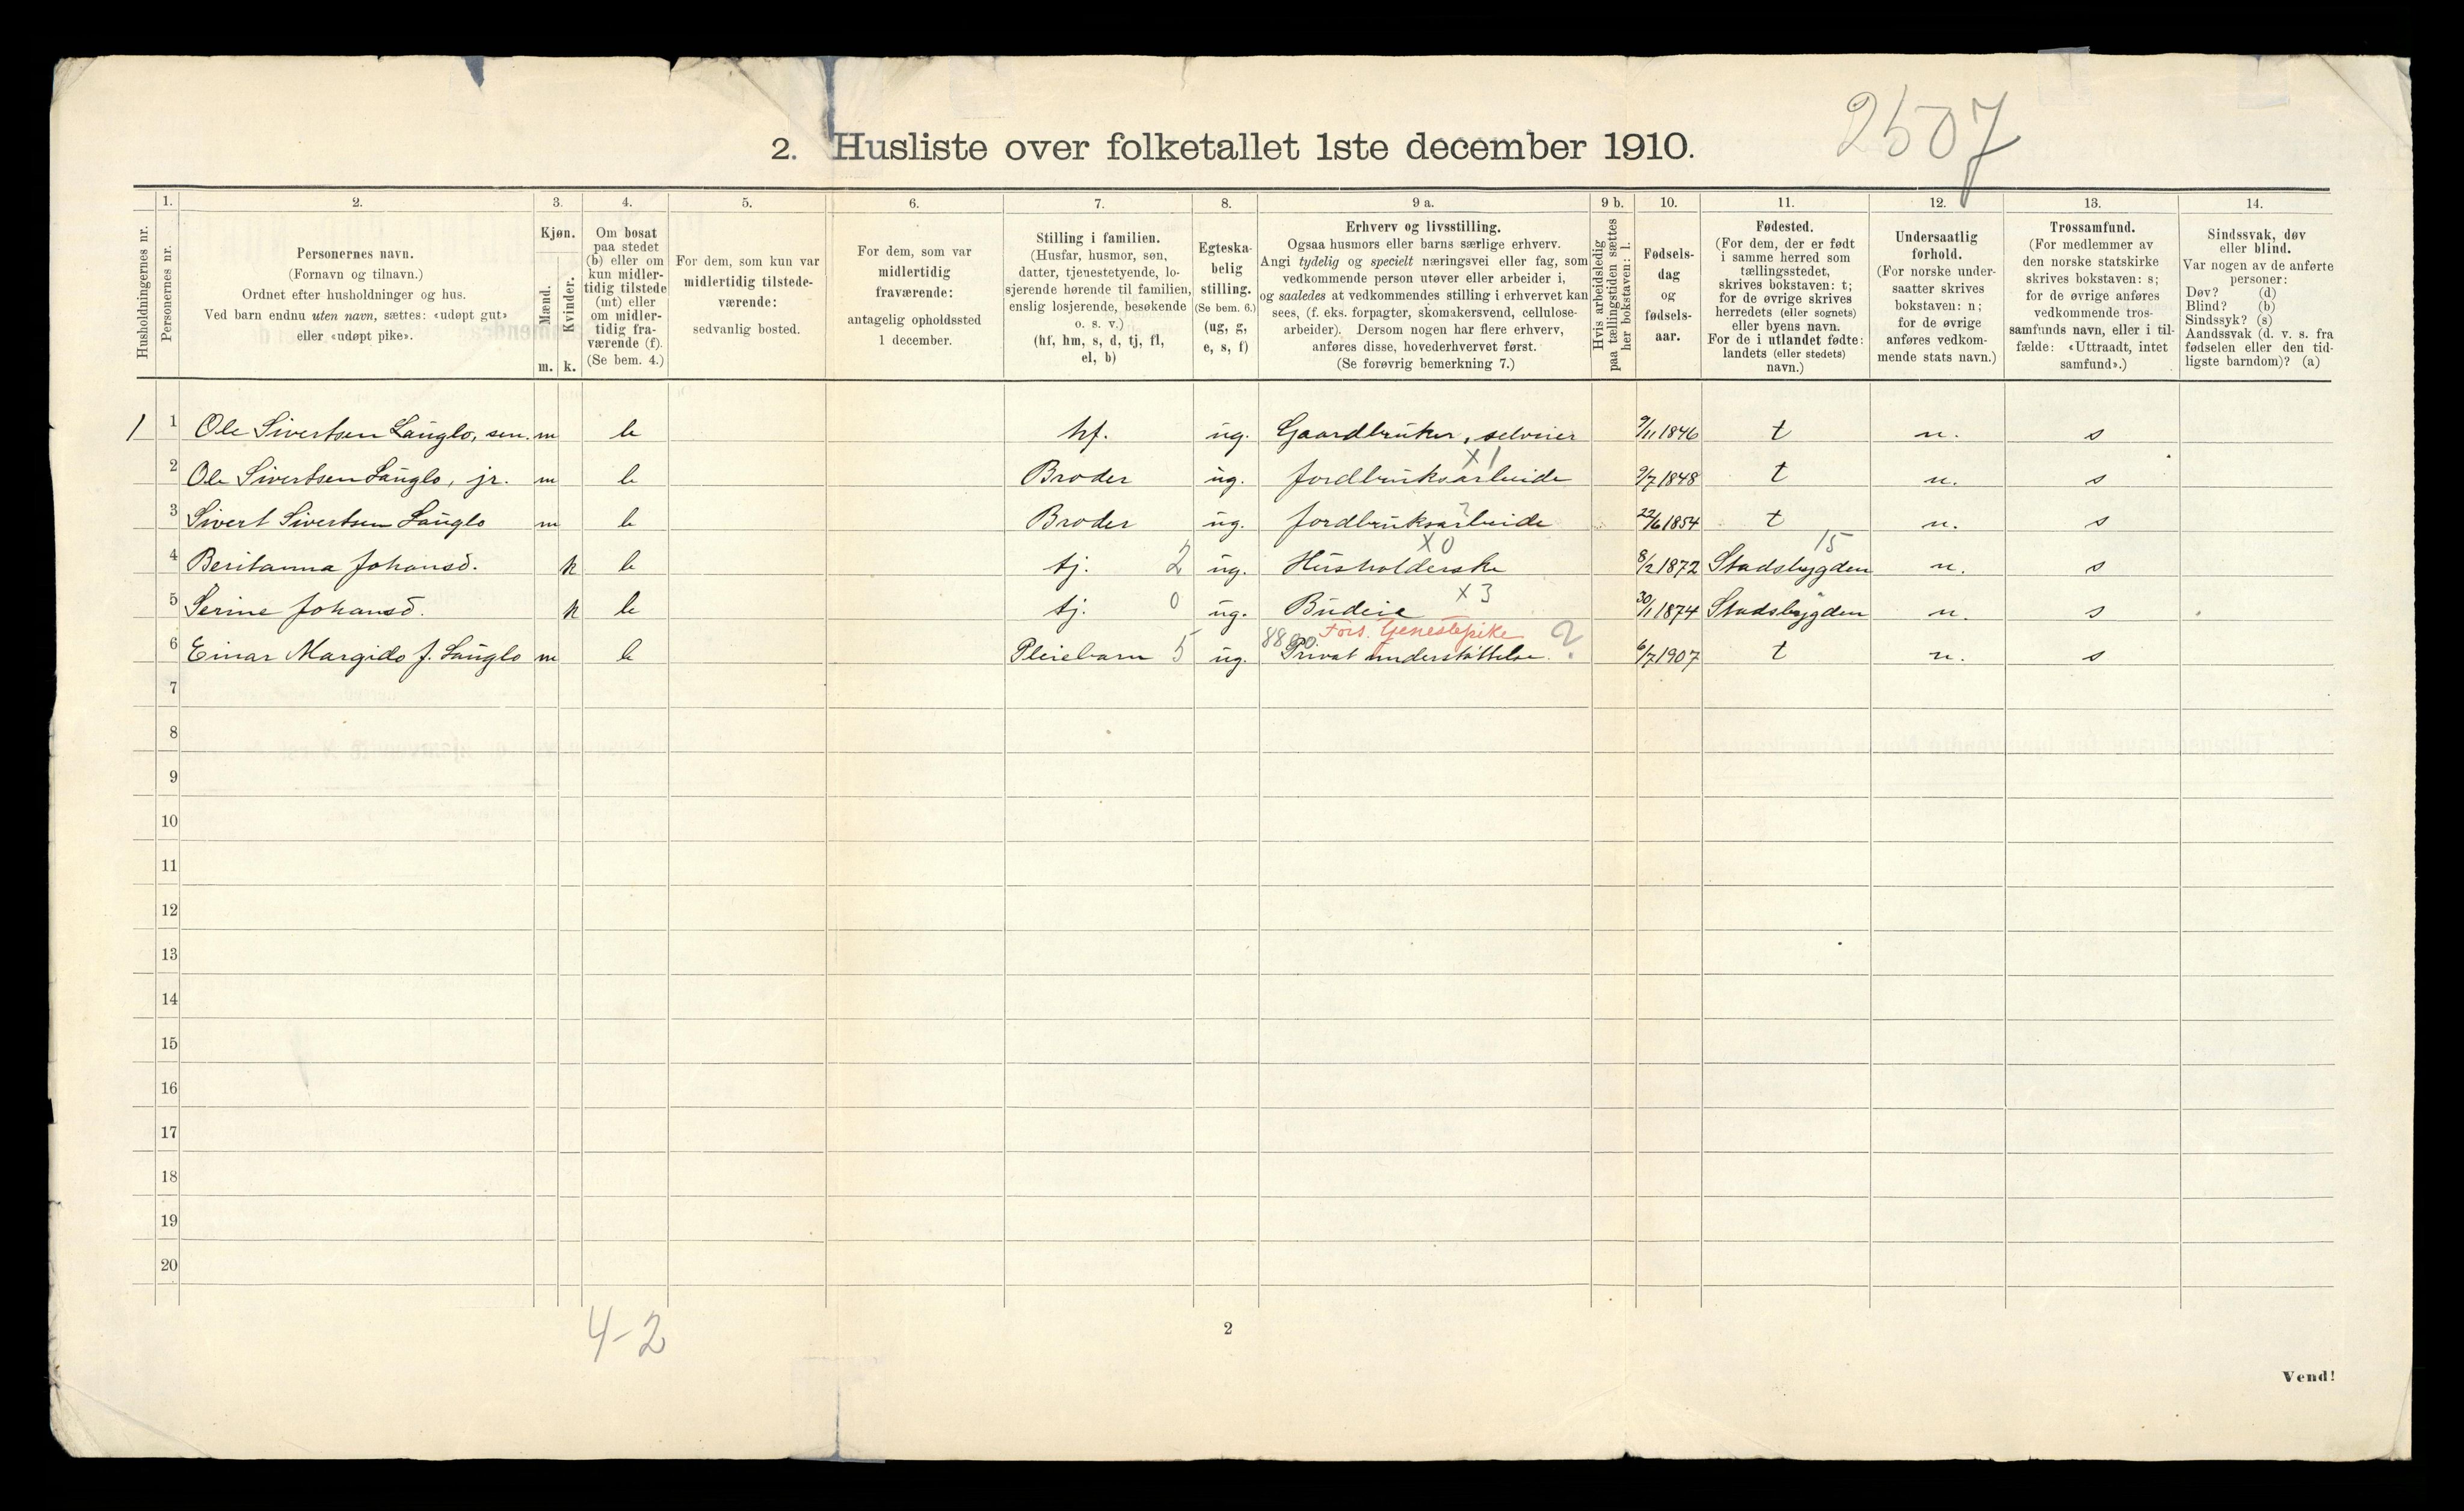 2507
2. Husliste over folketallet 1ste december 1910.
Husholdningernes nr.
1.
Personernes nr.
2.
Personernes navn.
(Fornavn og tilnavn.)
Ordnet efter husholdninger og hus.
Ved barn endnu uten navn, sættes: «udøpt gut»
eller «udøpt pike».
3.
Kjøn.
Mænd.
Kvinder.
m. k.
4.
Om bosat
paa stedet
(b) eller om
kun midler-
tidig tilstede
(mt) eller
om midler-
tidig fra-
værende (f).
(Se bem. 4.)
5.
For dem, som kun var
midlertidig tilstede-
værende:
sedvanlig bosted.
6.
For dem, som var
midlertidig
fraværende:
antagelig opholdssted
1 december.
7.
Stilling i familien.
(Husfar, husmor, søn,
datter, tjenestetyende, lo-
sjerende hørende til familien,
enslig losjerende, besøkende
o. s. v.)
(hf, hm, s, d, tj, fl,
el, b)
8.
Egteska-
belig
stilling.
(Se bem. 6.)
(ug, g,
e, s, f)
9 a.
Erhverv og livsstilling.
Ogsaa husmors eller barns særlige erhverv.
Angi tydelig og specielt næringsvei eller fag, som
vedkommende person utøver eller arbeider i,
og saaledes at vedkommendes stilling i erhvervet kan
sees, (f. eks. forpagter, skomakersvend, cellulose-
arbeider). Dersom nogen har flere erhverv,
anføres disse, hovederhvervet først.
(Se forøvrig bemerkning 7.)
9 b.
Hvis arbeidsledig
paa tællingstiden sættes
her bokstaven: l.
10.
Fødsels-
dag
og
fødsels-
aar.
11.
Fødested.
(For dem, der er født
i samme herred som
tællingsstedet,
skrives bokstaven: t;
for de øvrige skrives
herredets (eller sognets)
eller byens navn.
For de i utlandet fødte:
landets (eller stedets)
navn.)
12.
Undersaatlig
forhold.
(For norske under-
saatter skrives
bokstaven: n;
for de øvrige
anføres vedkom-
mende stats navn.)
13.
Trossamfund.
(For medlemmer av
den norske statskirke
skrives bokstaven: s;
for de øvrige anføres
vedkommende tros-
samfunds navn, eller i til-
fælde: «Uttraadt, intet
samfund».)
14.
Sindssvak, døv
eller blind.
Var nogen av de anførte
personer:
Døv? (d)
Blind? (b)
Sindssyk? (s)
Aandssvak (d. v. s. fra
fødselen eller den tid-
ligste barndom)? (a)
1 1 Ole Sivertsen Langlo, sen. m b hf. ug. Gaardbruker, selveier 9/11 1846 t n. s
X 1
2 Ole Sivertsen Langlo, jr. m b Broder ug. Jordbruksarbeide 9/7 1848 t n. s
?
3 Sivert Sivertsen Langlo m b Broder ug. Jordbruksarbeide 22/6 1854 t n. s
X 0 15
4 Beritanna Johansd. k b tj. 2 ug. Husholderske 8/2 1872 Stadsbygden n. s
X 3
5 Serine Johansd. k b tj. 0 ug. Budeie 30/1 1874 Stadsbygden n. s
8890 Fors. tjenestepike ?
6 Einar Margido J. Langlo m b Pleiebarn 5 ug. Privat understøttelse. 6/7 1907 t n. s
7
8
9
10
11
12
13
14
15
16
17
18
19
20
4-2
2
Vend!